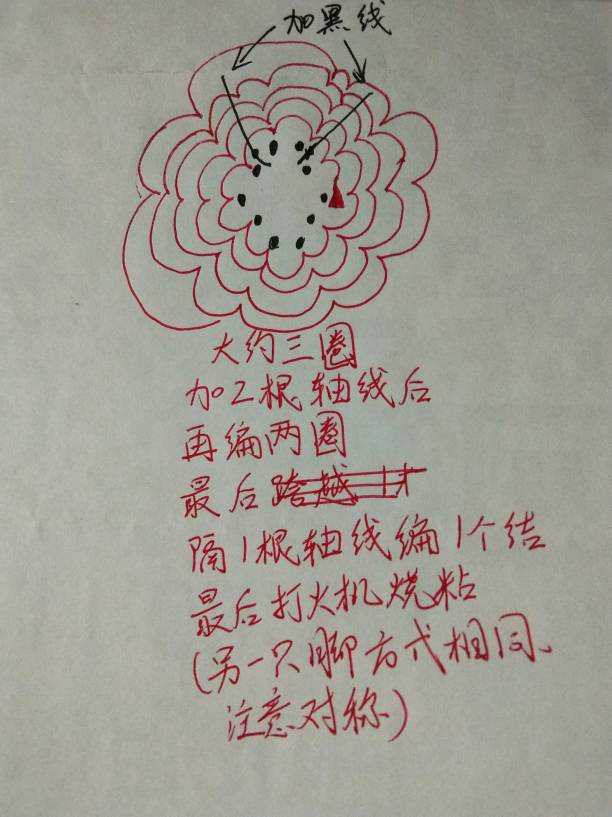 加黑线
大约三圈
加2根轴线后
再编两圈
最后跨越1才
隔1根轴线编1个结
最后打火机烧粘
(另一只脚方式相同、
注意对称)